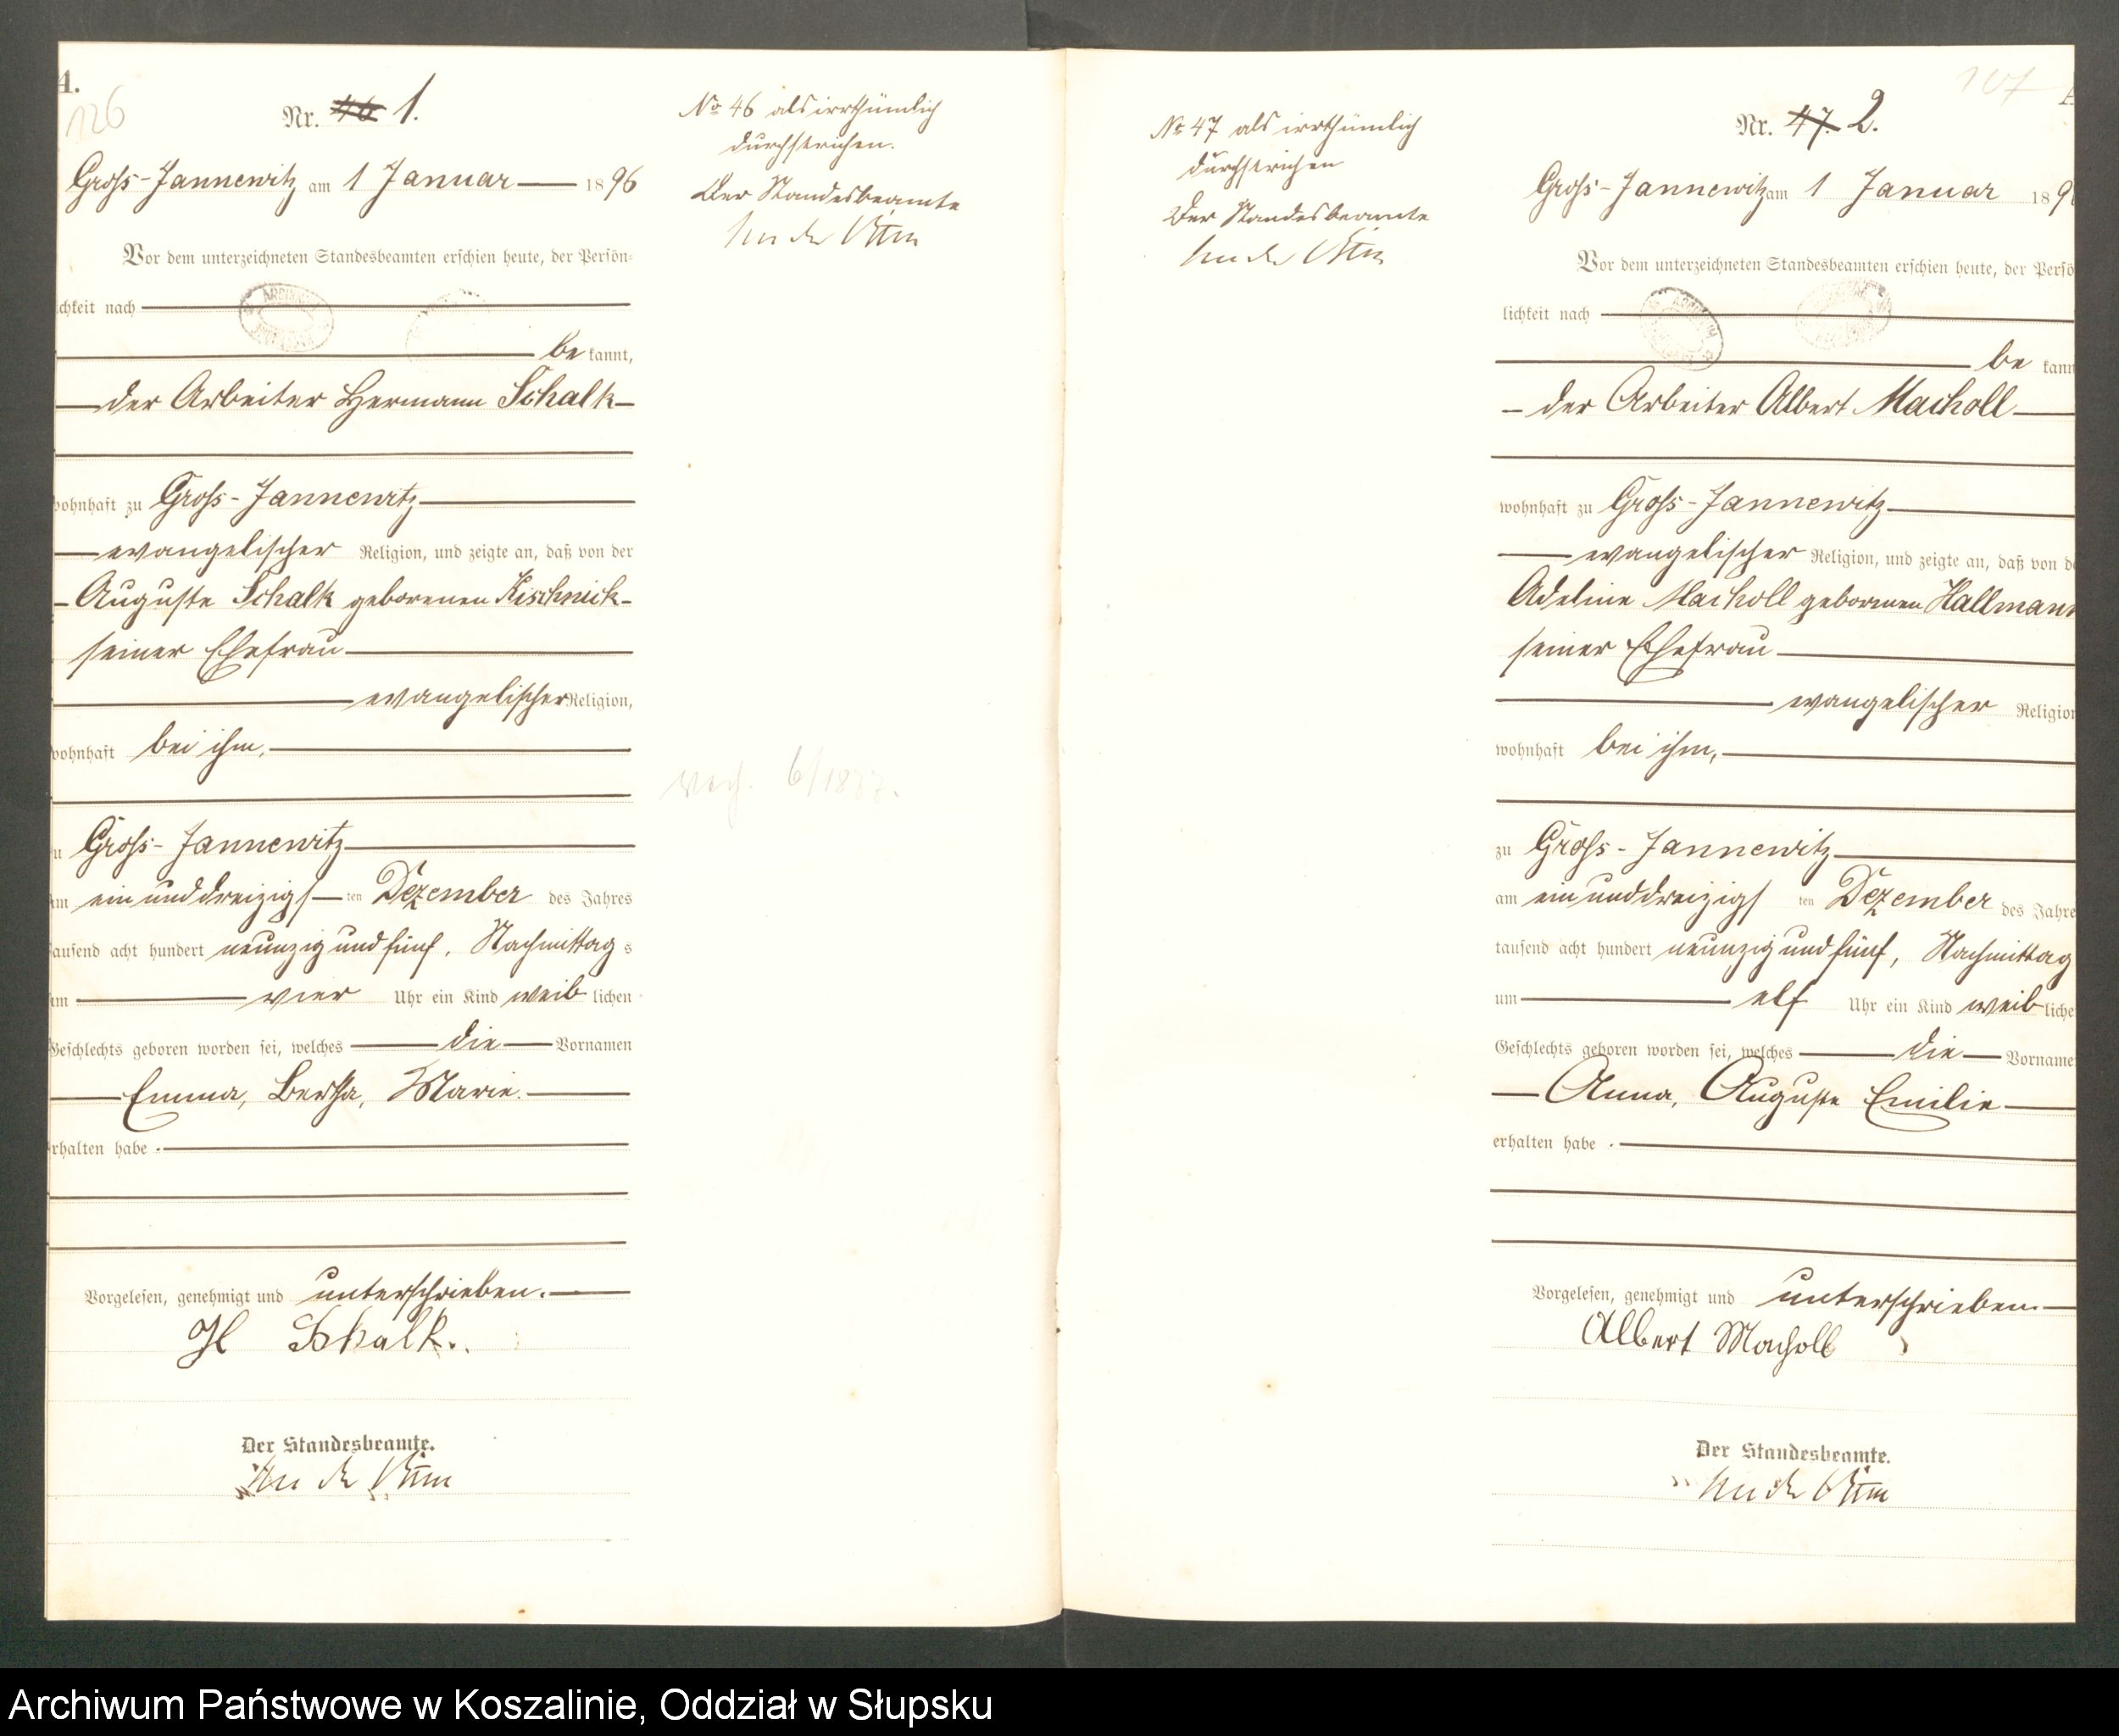 A.
126
Nr. 46 1.
Gross-Jannewitz am 1 Januar 1896
Vor dem unterzeichneten Standesbeamten erschien heute, der Persön-
lichkeit nach
be kannt,
der Arbeiter Hermann Schalk
wohnhaft zu Gross-Jannewitz
evangelischer Religion, und zeigte an, daß von der
Auguste Schalk geborenen Kischnick
seiner Ehefrau
evangelischer Religion,
wohnhaft bei ihm,
zu Gross-Jannewitz
am ein und dreizigs ten Dezember des Jahres
tausend acht hundert neunzig und fünf, Nachmittag s
um vier Uhr ein Kind weib lichen
Geschlechts geboren worden sei, welches die Vornamen
Emma, Bertha, Marie.
erhalten habe.
Vorgelesen, genehmigt und unterschrieben.
H Schalk.
Der Standesbeamte.
No 46 als irrthümlich
durchstrichen.
Der Standesbeamte
No 47 als irrthümlich
durchstrichen
Der Standesbeamte
107
Nr. 47. 2.
Gross-Jannewitz am 1 Januar 189
Vor dem unterzeichneten Standesbeamten erschien heute, der Persö
lichkeit nach
be kann
der Arbeiter Albert Macholl
wohnhaft zu Gross-Jannewitz
evangelischer Religion, und zeigte an, daß von de
Adeline Macholl geborenen Hallmann
seiner Ehefrau
evangelischer Religion
wohnhaft bei ihm,
zu Gross-Jannewitz
am ein und dreizigs ten Dezember des Jahre
tausend acht hundert neunzig und fünf, Nachmittag
um elf Uhr ein Kind weib liche
Geschlechts geboren worden sei, welches die Vorname
Anna, Auguste Emilie
erhalten habe.
Vorgelesen, genehmigt und unterschrieben.
Albert Macholl
Der Standesbeamte.
Archiwum Państwowe w Koszalinie, Oddział w Słupsku